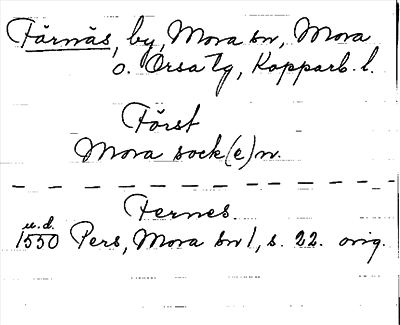 Färnäs, by, Mora sn, Mora
o. Orsa tg, Kopparb. l.
Först
Mora sock(e)n.
Fernes
u.d.
1550 Pers, Mora sn 1, s. 22. orig.